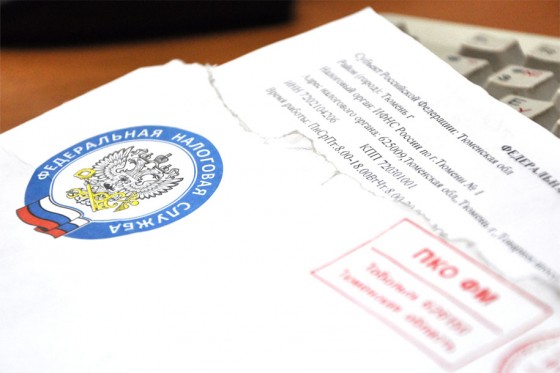 ФЕДЕРАЛЬНАЯ НАЛОГОВАЯ СЛУЖБА
Субъект Российской Федерации: Тюменская обл
Район (город): Тюмень г
Налоговый орган: ИФНС России по г.Тюмени № 1
Адрес налогового органа: 625009,Тюменская обл,Тюмень г,
ИНН 7202104206 КПП 720301001
Время работы: ПнСрПт:8.00-18.00ВтЧт:8.00
ФЕДЕРАЛЬН
ПКО ФМ
Тобольск
Тюменская область